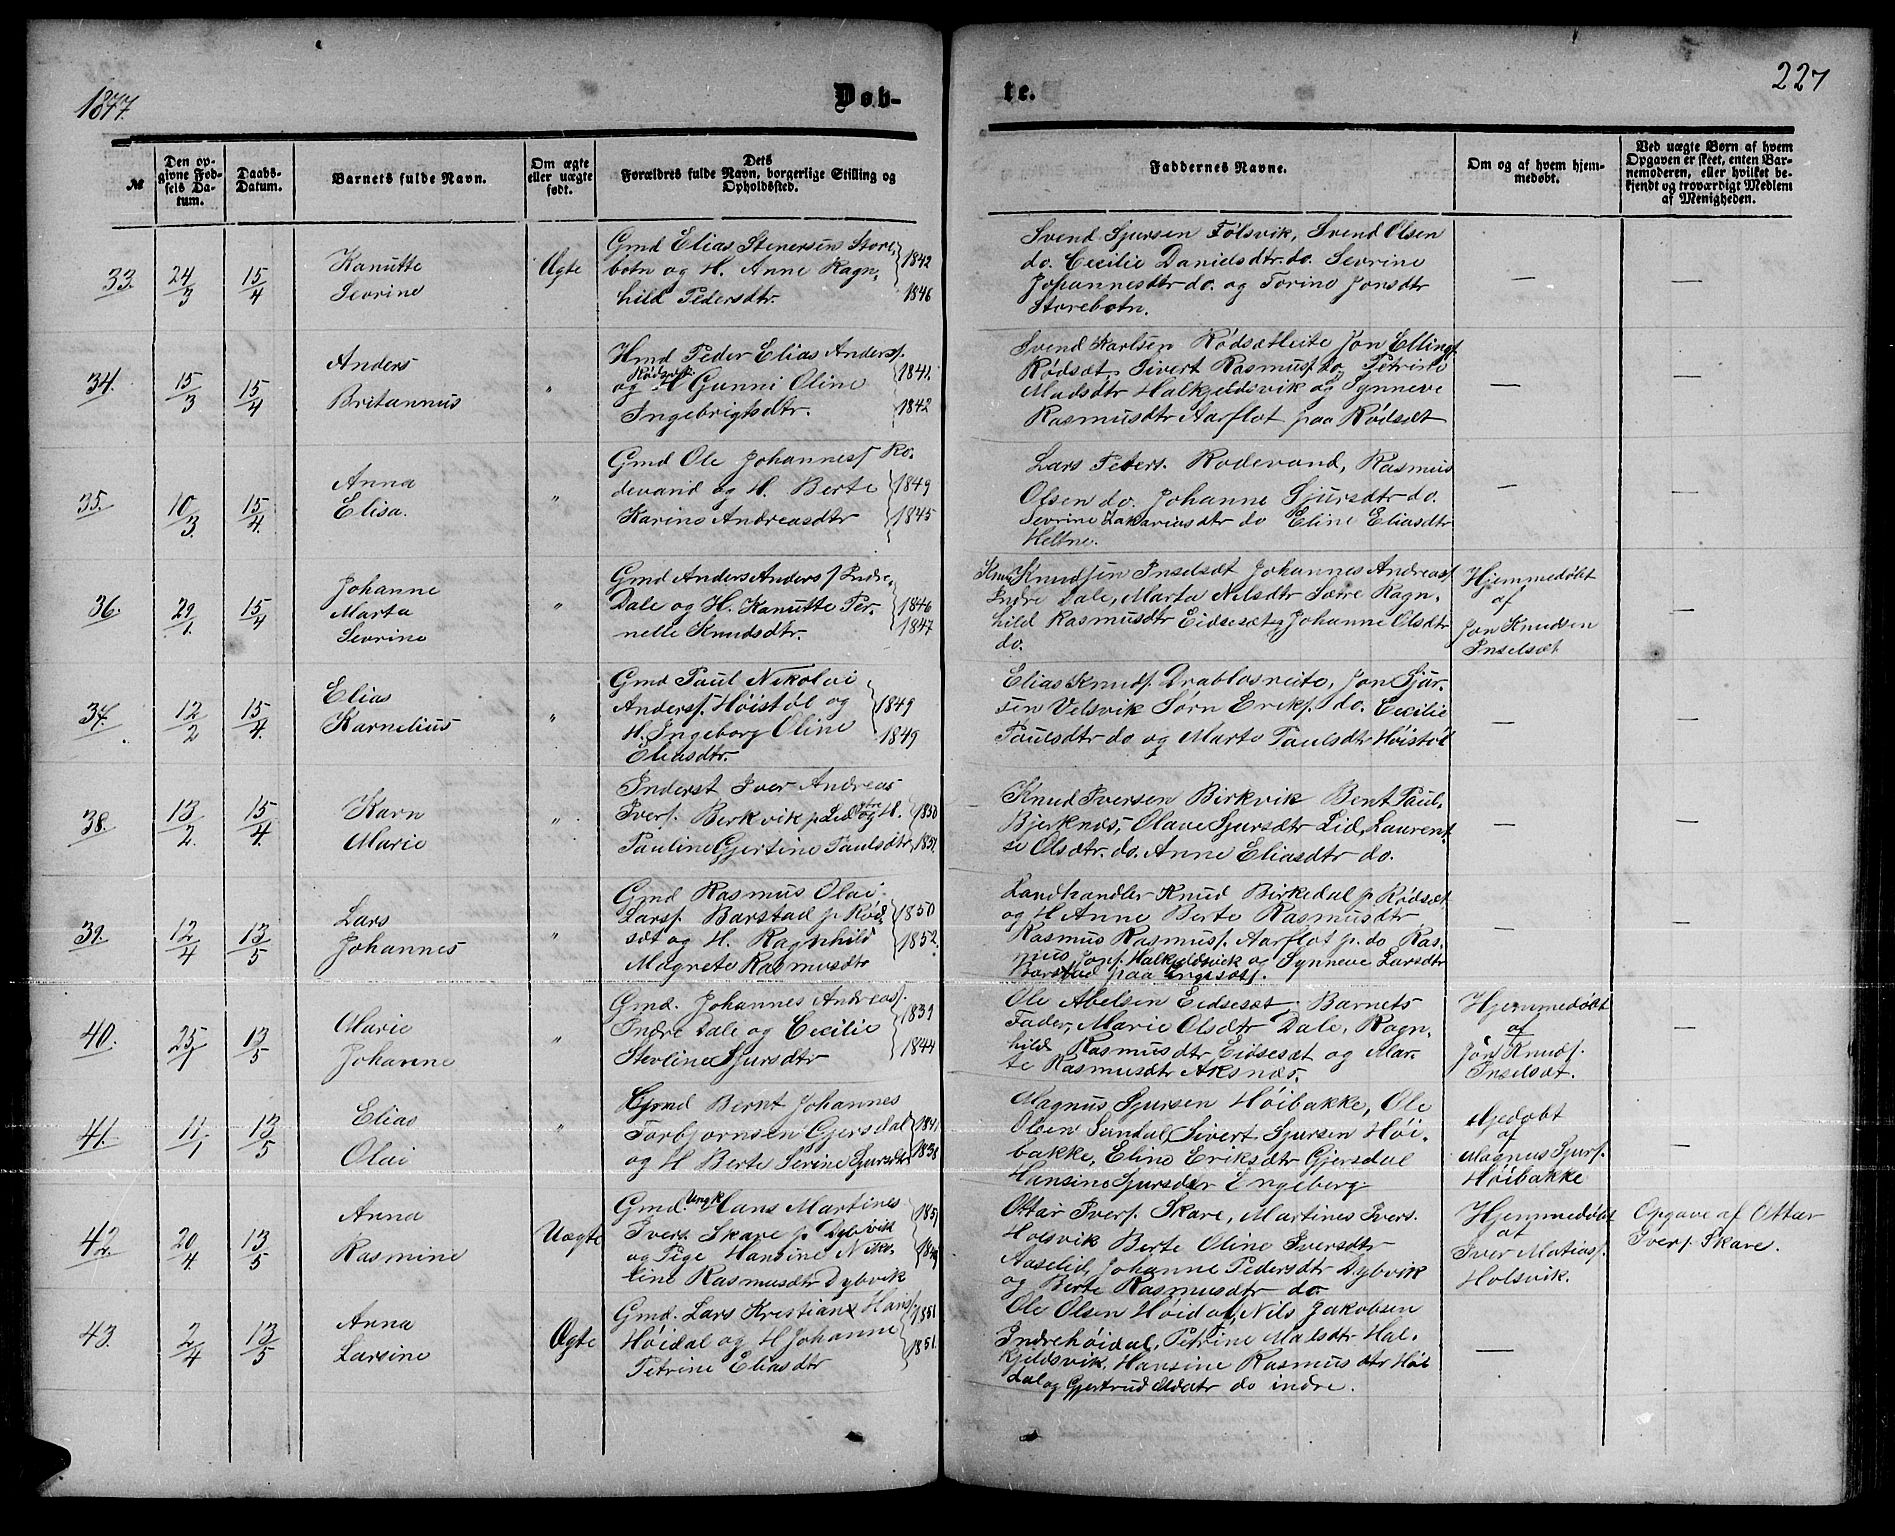 1877.
Døb-
te.
227
№
Den op-
givne Fød-
sels Da-
tum.
Daabs-
Datum.
Barnets fulde Navn.
Om ægte
eller uægte
født.
Dets
Forældres fulde Navn, borgerlige Stilling og
Opholdssted.
Faddernes Navne.
Om og af hvem hjem-
medøbt.
Ved uægte Børn af hvem
Opgaven er skeet, enten Bar-
nemoderen, eller hvilket be-
kjendt og troværdigt Medlem
af Menigheden.
33. 24/3 15/4
Kanutte
Sevrine
Ægte
Gmd Elias Stenersen Store-
botn og H. Anne Ragn-
hild Pedersdtr.
1842
1846
Svend Sjursen Følsvik, Svend Olsen
do. Cecilie Danielsdtr. do. Sevrine
Johannesdtr do. og Torine Jonsdtr
Storebotn.
—
—
34. 15/3 15/4
Anders
Britannus
"
Hmd Peder Elias Anders.
Rødsæt
og H Gunni Oline
Ingebrigtsdtr.
1841.
1842
Svend Karlsen Rødsætleite Jon Ellings.
Rødsæt, Sivert Rasmus. do, Petrine
Madsdtr Halkjeldsvik og Synneve
Rasmusdtr Aarflot paa Rødsæt
—
—
35. 10/3. 15/4.
Anna
Elisa.
"
Gmd Ole Johannes. Ro-
devand og H. Berte
Karine Andreasdtr
1849
1845
Lars Peters. Rodevand, Rasmus
Olsen do. Johanne Sjursdtr do.
Sevrine Zakariasdtr do Eline Eliasdtr
Heltne.
—
—
36. 29/1. 15/4
Johanne
Marta
Sevrine
"
Gmd Anders Anders. Indre-
Dale og H. Kanutte Per-
nelle Knudsdtr.
1846
1847
Knudsen Inselsæt Johannes Andreas.
Indre Dale, Marta Nilsdtr Sætre Ragn-
hild Rasmusdtr Eidsesæt, Johanne Olsdtr
do.
Hjemmedøbt
af
Jon Knudsen
Inselsæt
—
37. 12/2 15/4.
Elias
Karnelius
"
Gmd Paul Nikolai
Anders. Høistøl og
H. Ingeborg Oline
Eliasdtr.
1849
1849
Elias Knuds. Drabløsneite, Jon Sjur-
sen Velsvik Sørn Eriks. do. Cecilie
Paulsdtr do og Marte Paulsdtr Høistøl
—
—
38. 13/2. 15/4.
Karn
Marie
"
Inderst Iver Andreas
Ivers. Berkvik p. Lid og H.
Pauline Gjertine Paulsdtr
1850
1851.
Knud Iversen Birkvik Bent Paul.
Bjerknæs, Olave Sjursdtr Lid, Laurent-
se Olsdtr. do. Anne Eliasdtr do.
—
—
39. 12/4 13/5
Lars
Johannes
"
Gmd Rasmus Olai
Lars. Barstad p. Rød-
sæt og H. Ragnhild
Magnete Rasmusdtr
1850
1852.
Landhandler Knud Birkedal p. Rødsæt
og H Anne Berte Rasmusdtr
Rasmus Rasmus. Aarflot p. do Ras-
mus Jons. Halkjeldsvik og Synneve Larsdtr
Barstad paa Engesæt.
—
—
40. 25/1 13/5
Marie
Johanne
"
Gmd. Johannes Andreas.
Indre Dale og Cecilie
Stevline Sjursdtr
1839
1844
Ole Abelsen Eidsesæt, Barnets
Fader, Marie Olsdtr Dale, Ragn-
hild Rasmusdtr Eidsesæt og Mar-
te Rasmusdtr Aksnæs.
Hjemmedøbt
af
Jon Knuds.
Inselsæt.
—
41. 11/1 13/5
Elias
Olai
"
Gmd Bernt Johannes
Torbjørnsen Gjersdal
og H Berte Serine Sjursdtr
1841.
1838
Magnus Sjursen Høibakke, Ole
Olsen Sundal, Sivert Sjursen Høi-
bakke, Eline Eriksdtr Gjersdal
Hansine Sjursdtr Engeberg.
Hjedøbt
af
Magnus Sjurs.
Høibakke
—
42. 20/4. 13/5
Anna
Rasmine
Uægte
Gmd. Ungk Hans Martines
Ivers. Skare p. Dybvik
og Pige Hansine Niko-
line Rasmusdtr Dybvik
1851
Ottar Ivers. Skare, Martines Ivers.
Holsvik Berte Oline Iversdtr
Aaselid, Johanne Pedersdtr Dybvik
og Berte Rasmusdtr do
Hjemmedøbt
af
Iver Matias.
Holsvik.
Opgave af Ottar
Ivers. Skare.
43. 2/4 13/5
Anna
Larsine
Ægte
Gmd. Lars Kristian Hans.
Høidal og H Johanne
Petrine Eliasdtr
1851.
1851.
Ole Olsen Høidal, Nils Jakobsen
Indrehøidal, Petrine Malsdtr Hal-
kjeldsvik, Hansine Rasmusdtr Høi-
dal og Gjertrud Olsdtr do indre.
—